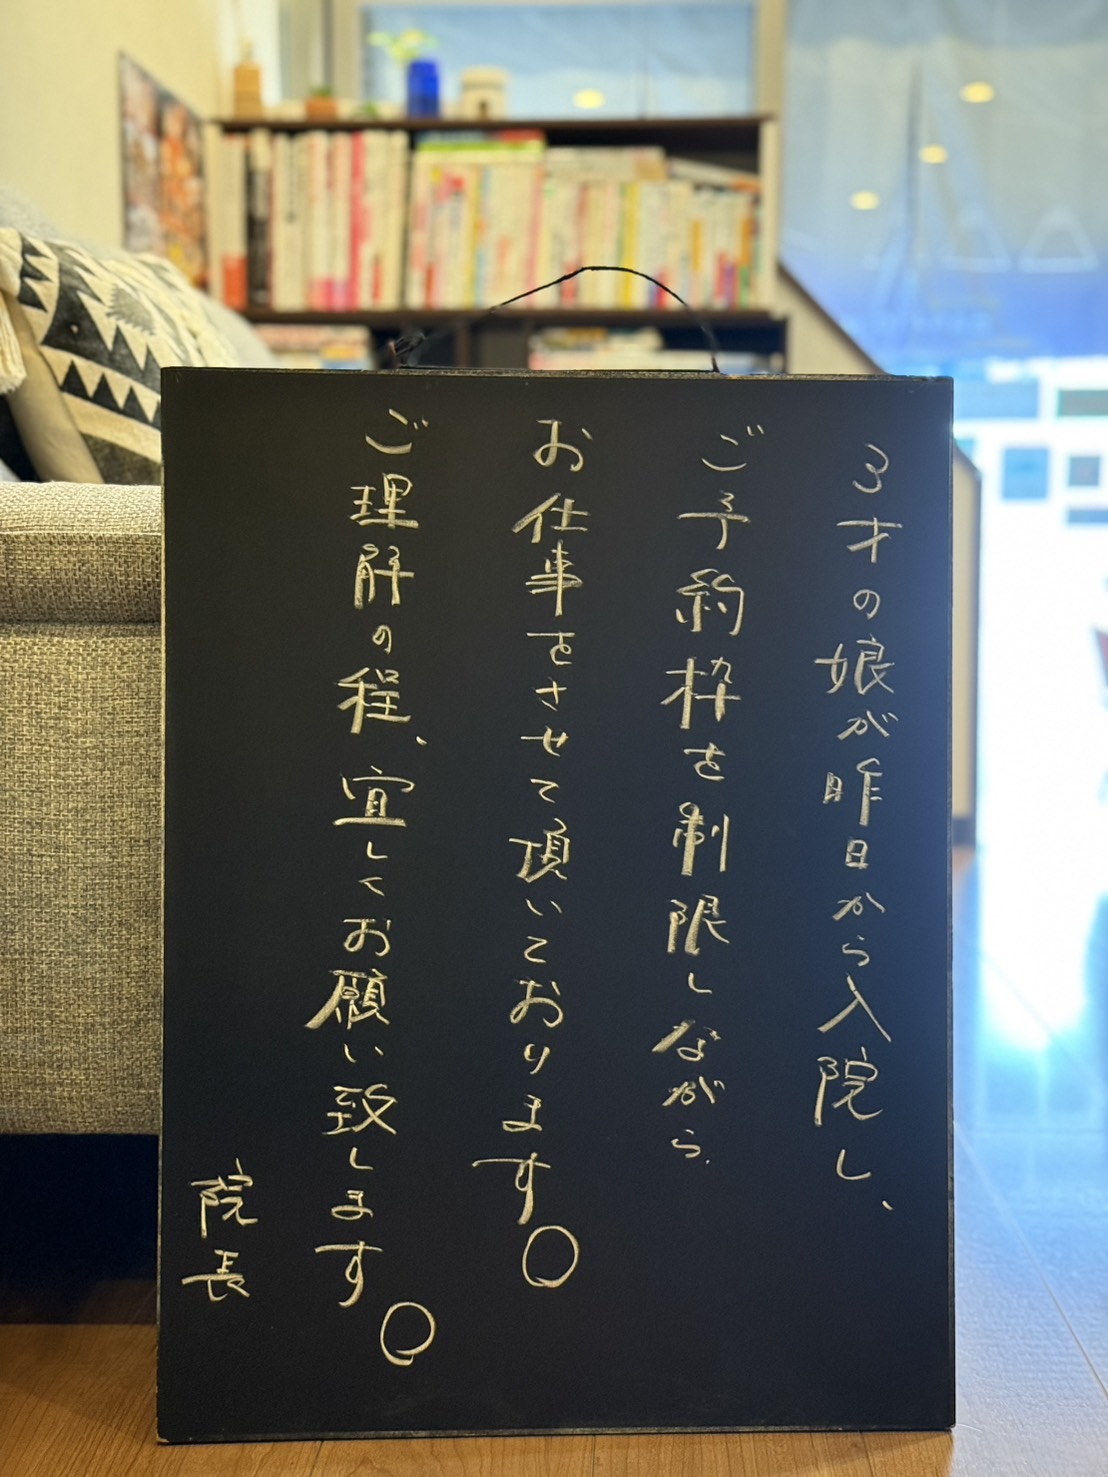 3才の娘が昨日から入院し、
ご予約枠を制限しながら、
お仕事をさせて頂いております。
ご理解の程、宜しくお願い致します。
院長